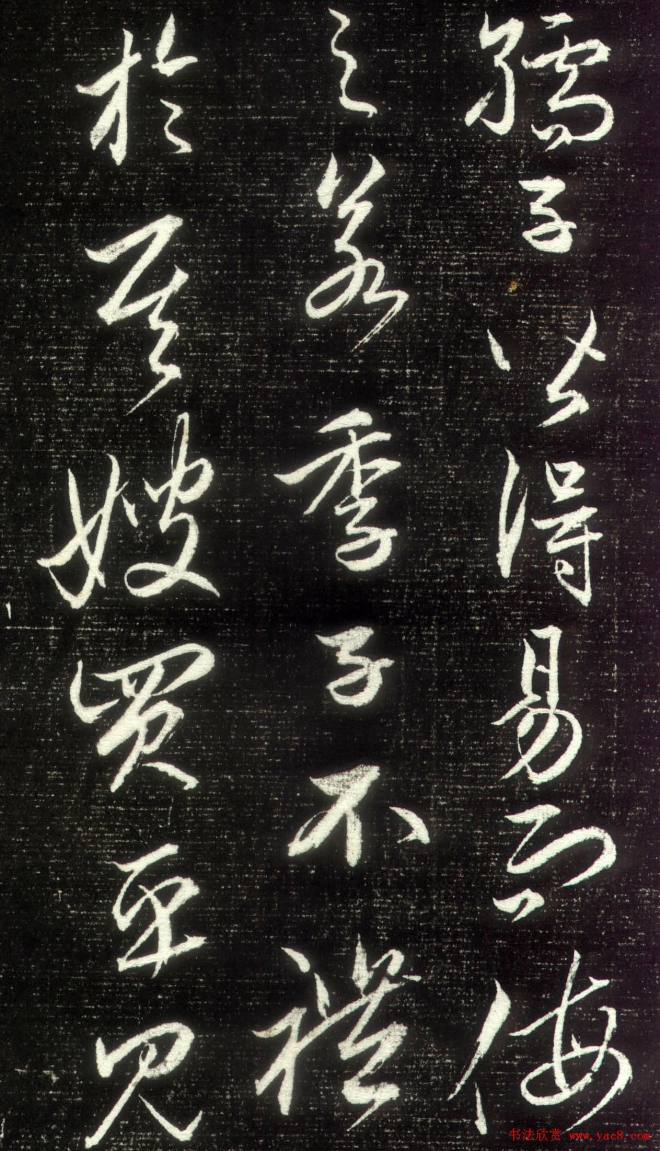 孺子皆得易而侮
之若季子不禮
於其嫂買臣見
书法欣赏 www.yac8.com